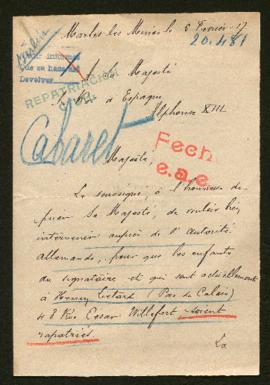 Marles les Mines le 5 Fevrier 17
20.481
A Sa Majesté
REPATRIACION
d'Espagne
Alphonse XIII
Cabaret
Fech
e.a.e
Majesté,
Le soussigné, a l'honneur de
prier Sa Majesté, de vouloir bien
intervenir auprès de l'autorité
Allemande, pour que les enfants
du signataire et qui sont actuellement
à Henin Liétard (Pas de Calais)
48 Rue Cesar soient
rapatriés
La